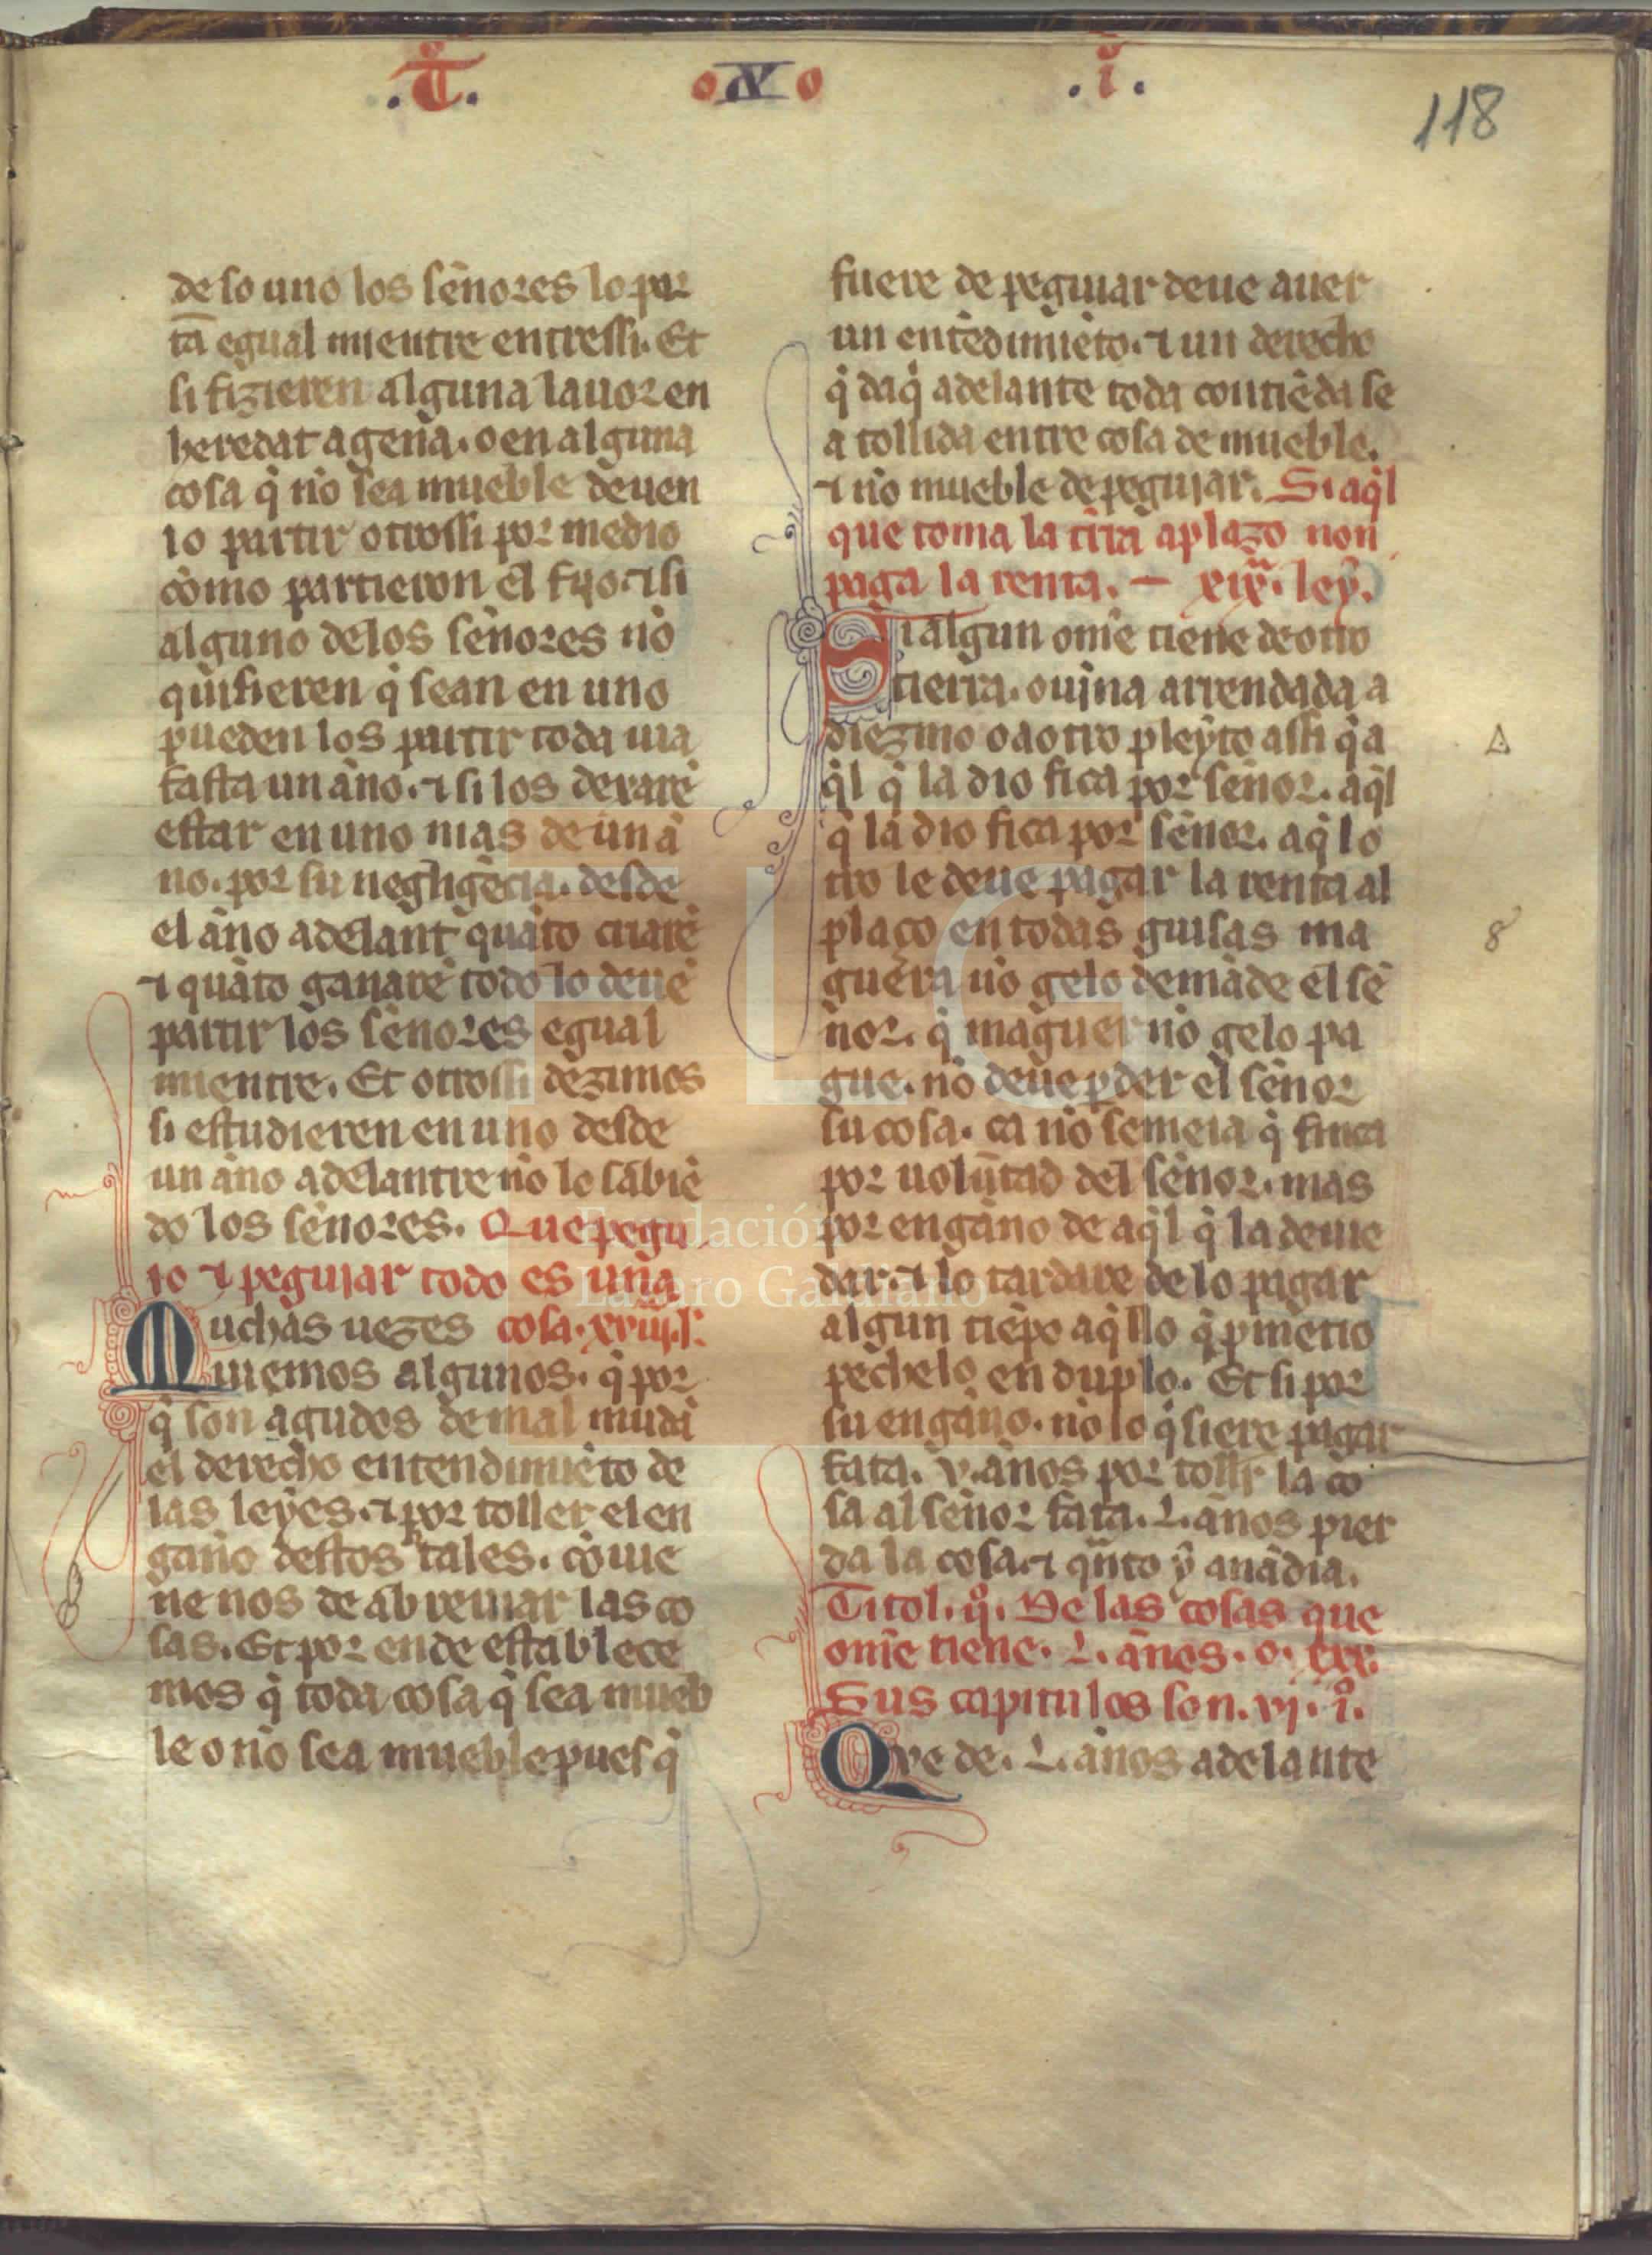 .T̊. X .i̊.
118
de so uno los señores lo par
tã egual mientre entressi. Et
si fizieren alguna lauor en
heredat agena. o en alguna
cosa q̇ nõ sea mueble deuen
lo partir otrossi por medio
como partieron el fijo. ⁊ si
alguno delos señores nõ
quisieren q̇ sean en uno
pueden los partir toda uia
fasta un año. ⁊ si los dexarẽ
estar en uno mas de un a
ño. por su negligẽcia. desde
el año adelant quãto criarẽ
⁊ quãto ganarẽ todo lo deuẽ
partir los señores egual
mientre. Et otrossi dezimos
si estudieren en uno desde
un año adelantre nõ lo sabiẽ
do los señores. Que pegu
io ⁊ pegujar todo es una
Muchas uezes cosa. xviij. l.
uiemos algunos. q̇ por
q̇ son agudos de mal muda
el derecho entendimiẽto de
las leyes. ⁊ por toller el en
gaño destos tales. cõuie
ne nos de abreuiar las co
sas. Et por ende establece
mos q̇ toda cosa q̇ sea mueb
le o nõ sea mueble pues q̇
fuere de pegujar deue auer
un entẽdimiẽto. ⁊ un derecho
q̇ daq̇ adelante toda contiẽda se
a tollida entre cosa de mueble.
⁊ nõ mueble de pegujar. Si aq̇l
que toma la tr̃ra a plazo non
paga la renta. — xix.ª ley.
Si algun om̃e tiene de otro
tierra. o uiña arrendada a
diezmo o a otro pleyto assi q̇ a
q̇l q̇ la dio fica por señor. aq̇l
q̇ la dio fica por señor. aq̇l o
tro le deue pagar la renta al
plaço en todas guisas ma
guera nõ gelo demãde el se
ñor. q̇ maguer nõ gelo pa
gue. nõ deue ꝑder el señor
su cosa. ca nõ semeia q̇ finca
por uolũtad del señor. mas
por engaño de aq̇l q̇ la deuie
dar. ⁊ lo tardare de lo pagar
algun tiẽpo aq̇llo q̇ ꝓmetio
pechelo en duplo. Et si por
su engaño. nõ lo q̇siere pagar
fata. v. años por tollr̃ la co
sa al señor fata. L. años pier
da la cosa. ⁊ qñto y anãdia.
Titol. ij̊. De las cosas que
om̃e tiene. L. años. o. xxx.
Sus capitulos son. vj. i̊.
Que de. L. años adelante
8
FLG
Fundación
Lázaro Galdiano